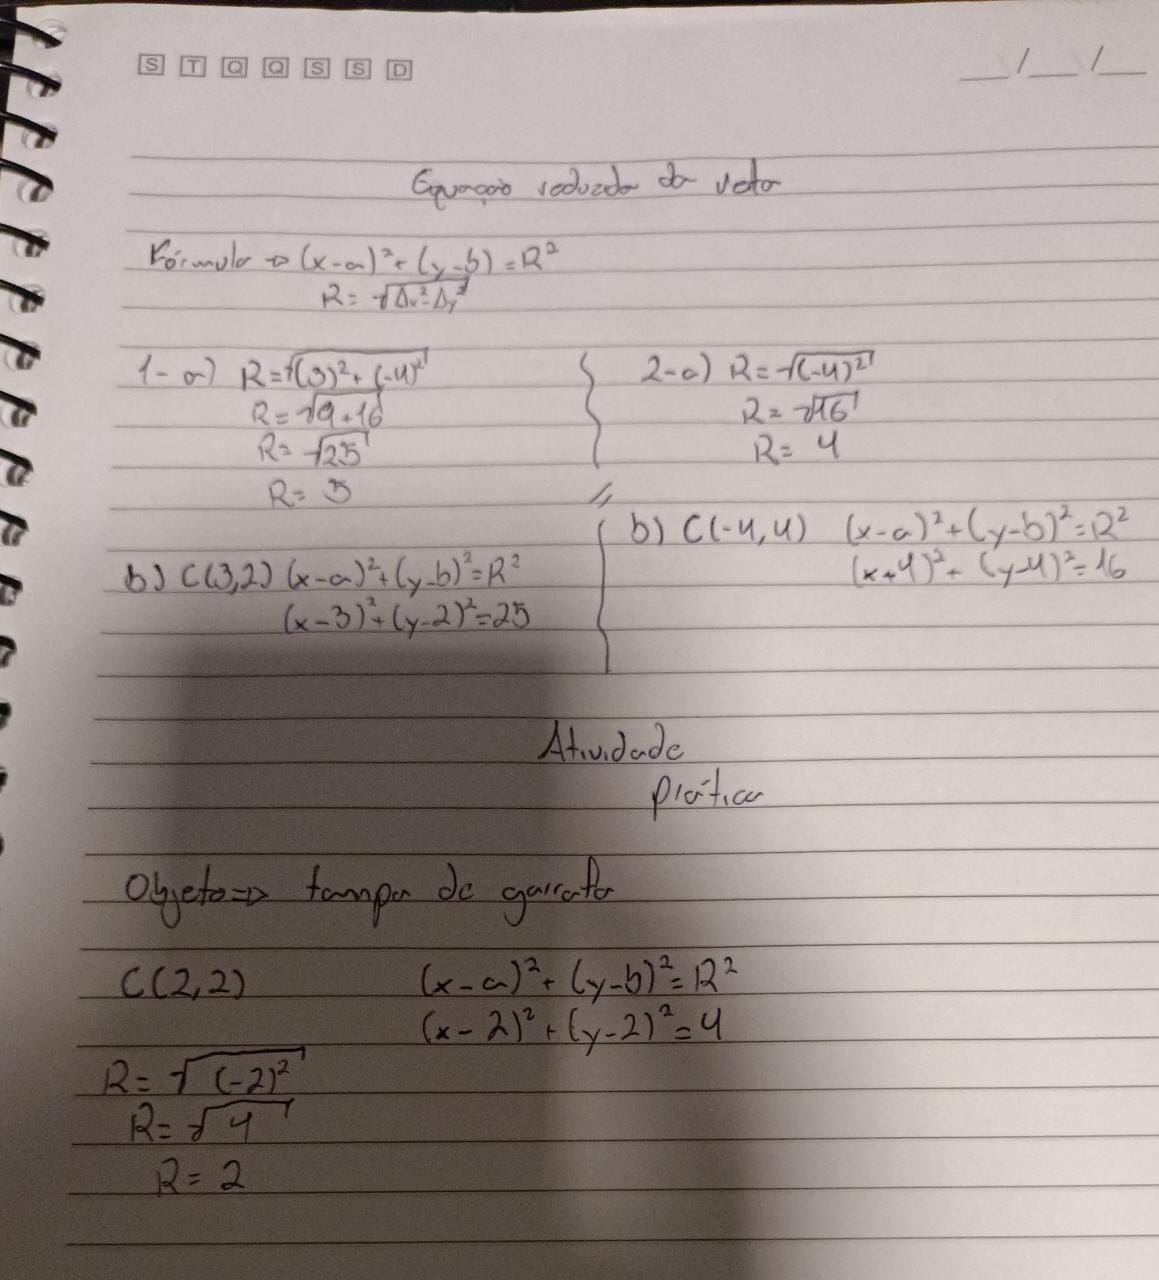 S T Q Q S S D
__/__/__
Equação reduzida da reta
Fórmula → (x-a)²+(y-b)=R²
R=√Δx²-Δy²
1-a) R=√(3)²+(-4)²
R=√9+16
R=√25
R=5
b) C(3,2) (x-a)²+(y-b)²=R²
(x-3)²+(y-2)²=25
2-a) R=√(-4)²
R=√16
R=4
b) C(-4,4) (x-a)²+(y-b)²=R²
(x+4)²+(y-4)²=16
Atividade
prática
Objeto⇒ tampa de garrafa
C(2,2)
(x-a)²+(y-b)²=R²
(x-2)²+(y-2)²=4
R=√(-2)²
R=√4
R=2